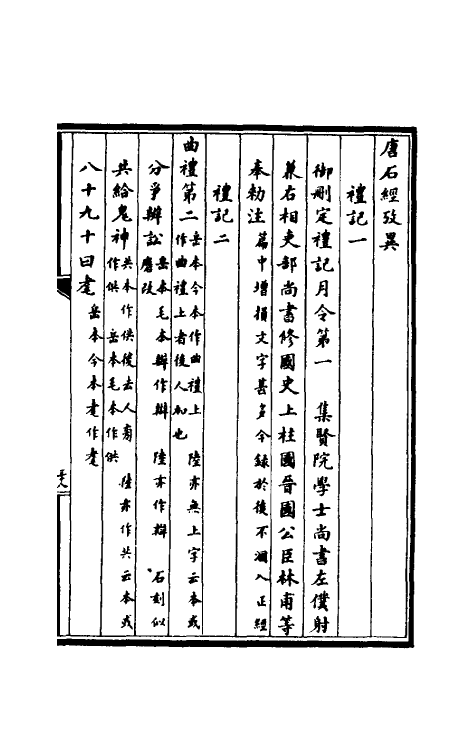 唐石經攷異
禮記一
御刪定禮記月令第一　集賢院學士尚書左僕射
兼右相吏部尚書修國史上柱國晉國公臣林甫等
奉勅注篇中增損文字甚多今錄於後不溷入正經
禮記二
曲禮第二岳本今本作曲禮上　陸亦無上字云本或作曲禮上者後人加也
分爭辯訟岳本毛本辯作辨　陸亦作辯　石刻似磨改
共給鬼神共本作供後去人旁　陸亦作共云本或作供　岳本毛本作供
八十九十曰耄岳本今本耄作耄